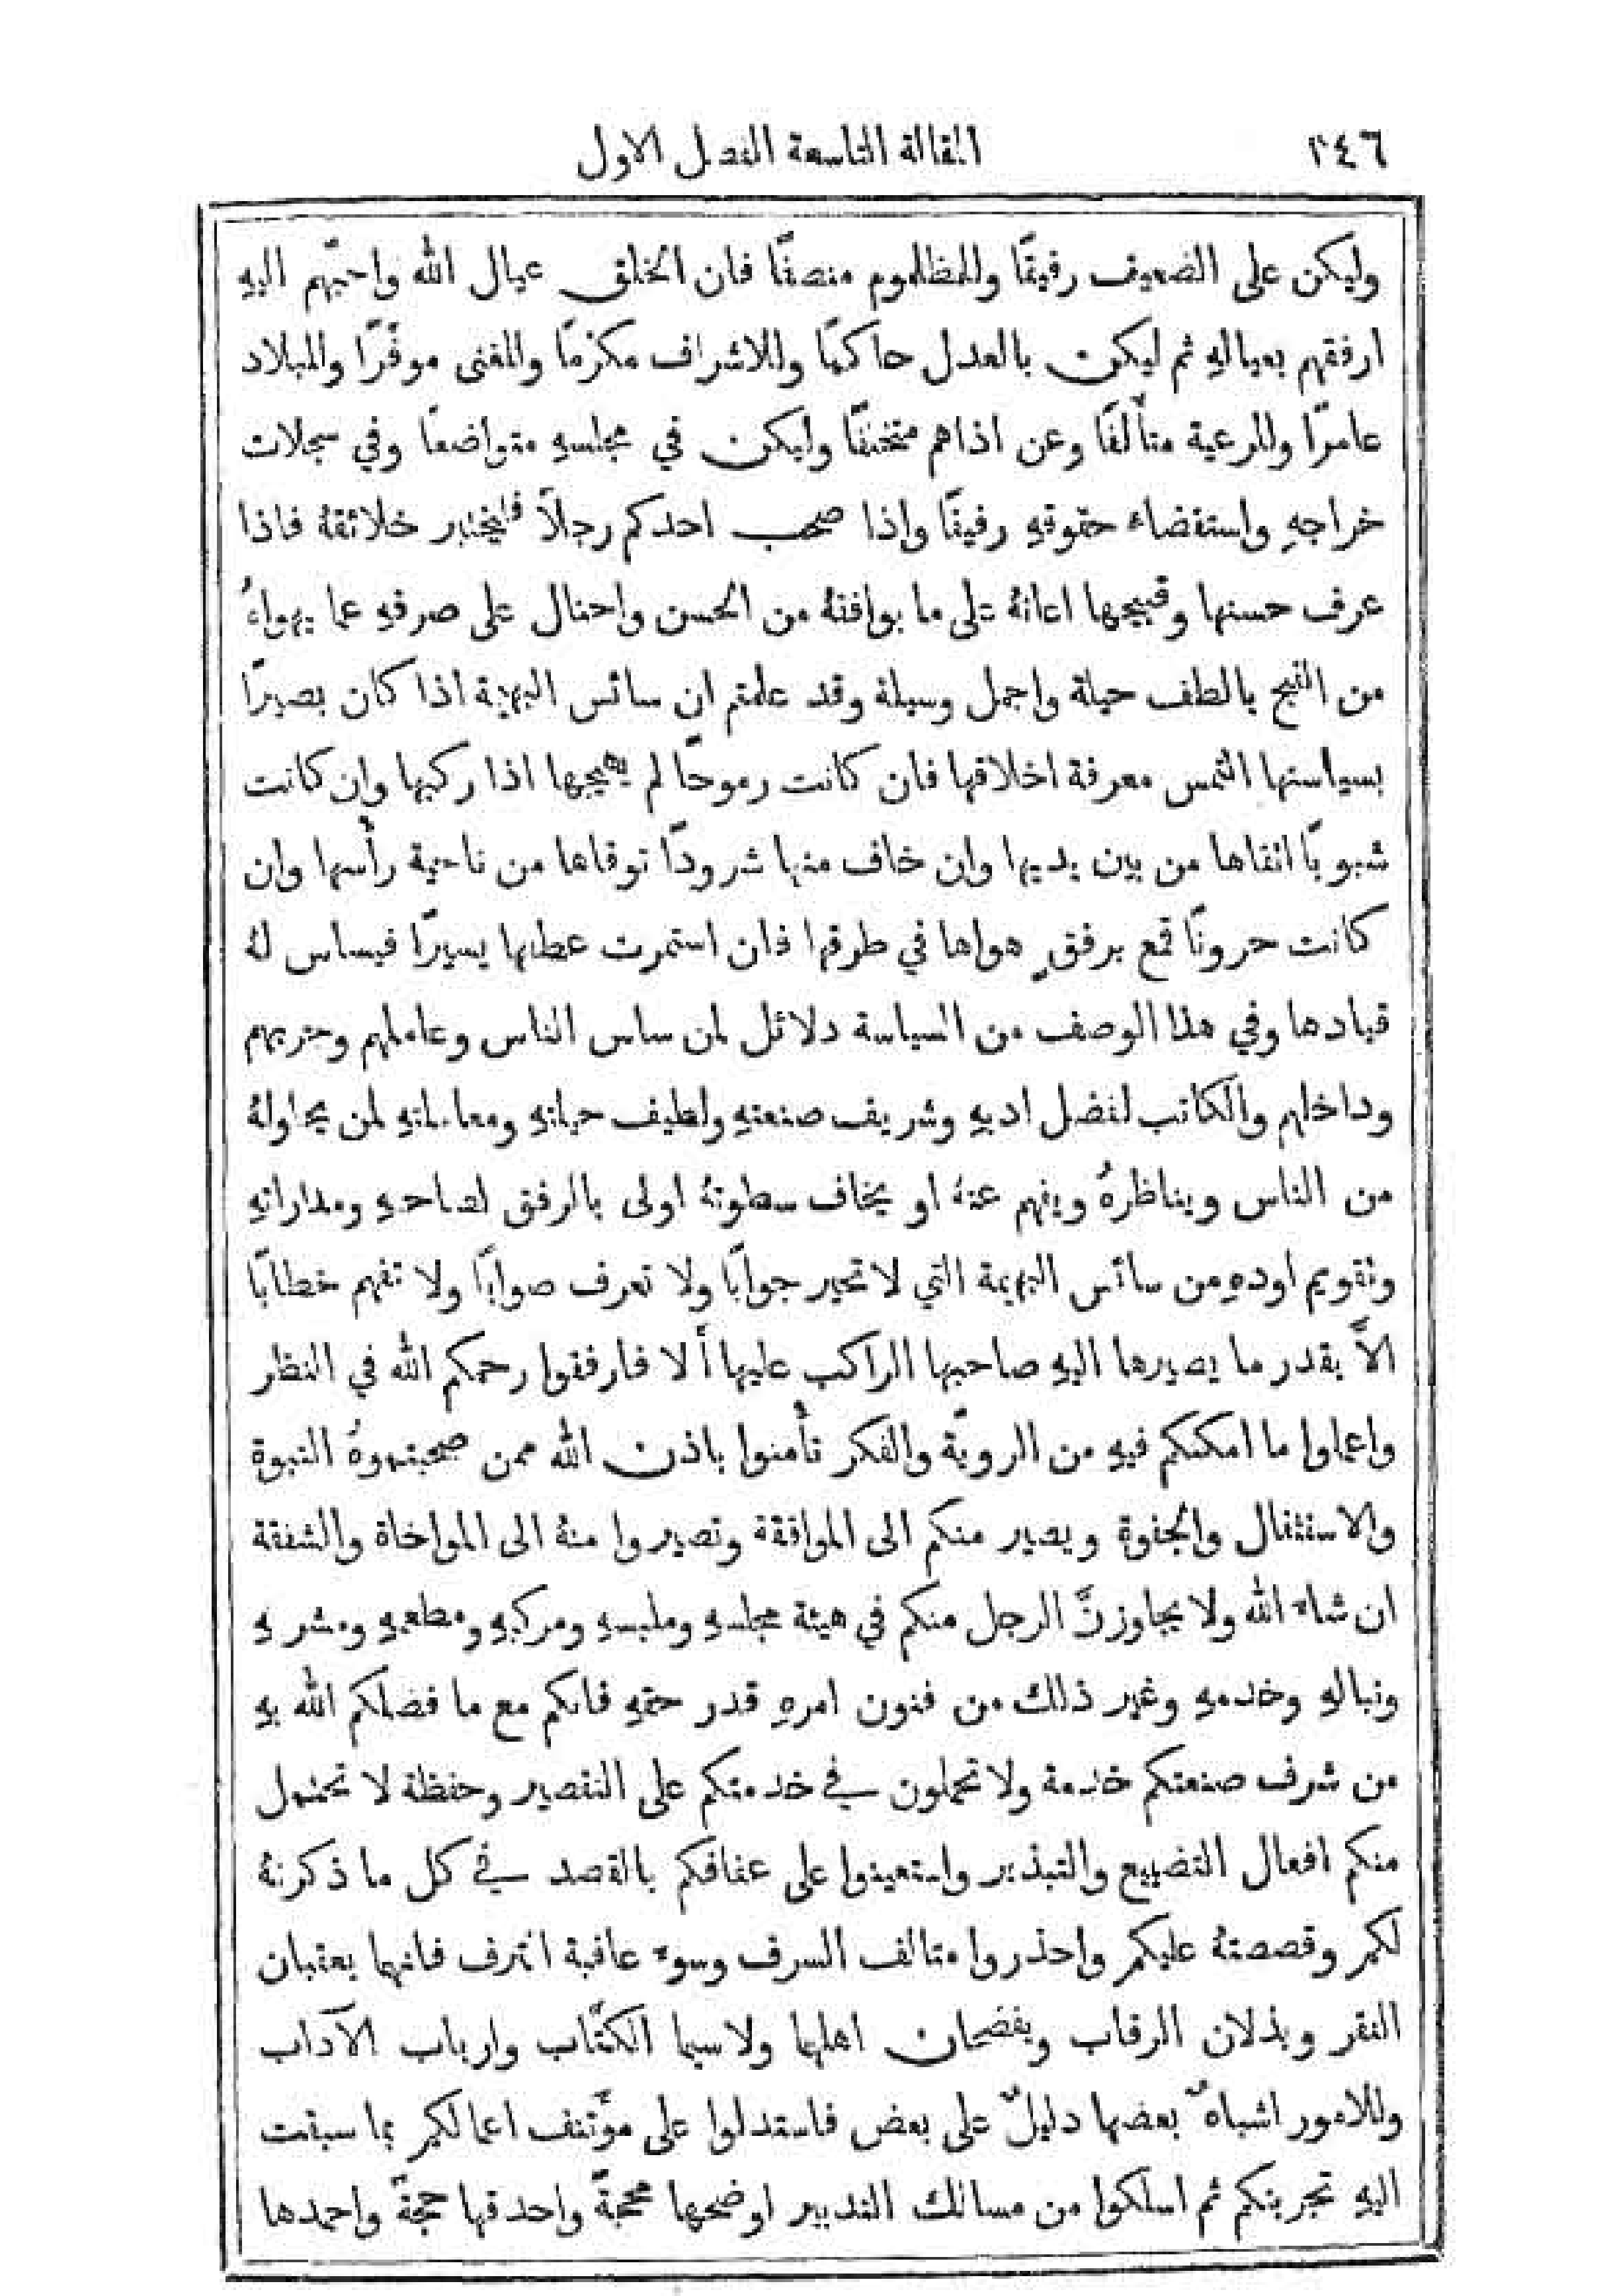 ٣٤٦ المقالة التاسعة الفصل الاول
وليكن على الضعيف رفيقًا وللمظلوم منصفًا فان الخلق عيال الله واحبّهم اليهِ
ارفقهم بعيالهِ ثم ليكن بالعدل حاكمًا وللاشراف مكرّمًا وللغنى موفّرًا وللبلاد
عامرًا وللرعية متألّفًا وعن اذاهم متخلفًا وليكن في مجلسهِ متواضعًا وفي سجلات
خراجهِ واستقضاء حقوقهِ رفيقًا واذا صحب احدكم رجلاً فليختبر خلائقهُ فاذا
عرف حسنها وقبيحها اعانهُ على ما يوافقهُ من الحسن واحتال على صرفهِ عما يهواهُ
من القبيح بالطف حيلة واجمل وسيلة وقد علمتم ان سائس البهيمة اذا كان بصيرًا
بسياستها التمس معرفة اخلاقها فان كانت رموحًا لم يهيجها اذا ركبها وان كانت
شبوبًا اتقاها من بين يديها وان خاف منها شرودًا توقاها من ناحية رأسها وان
كانت حرونًا قمع برفقٍ هواها في طرقها فان استمرت عطفها يسيرًا فيساس لهُ
قيادها وفي هذا الوصف من السياسة دلائل لمن ساس الناس وعاملهم وجربهم
وداخلهم والكاتب لفضل ادبهِ وشريف صنعتهِ ولطيف حيلتهِ ومعاملتهِ لمن يحاولهُ
من الناس ويناظرهُ ويفهم عنهُ او يخاف سطوتهُ اولى بالرفق لصاحبهِ ومداراتهِ
وتقويم اودهِ من سائس البهيمة التي لا تحير جوابًا ولا تعرف صوابًا ولا تفهم خطابًا
الاَّ بقدر ما يصيرها اليهِ صاحبها الراكب عليها ألا فارفقوا رحمكم الله في النظر
واعملوا ما امكنكم فيهِ من الرويّة والفكر تأمنوا باذن الله ممن صحبتموهُ النبوة
والاستثقال والجفوة ويصير منكم الى الموافقة وتصيروا منهُ الى المواخاة والشفقة
ان شاء الله ولا يجاوزنَّ الرجل منكم في هيئة مجلسهِ وملبسهِ ومركبهِ ومطعمهِ ومشربهِ
ونبالهِ وخدمهِ وغير ذلك من فنون امرهِ قدر حقهِ فانكم مع ما فضلكم الله بهِ
من شرف صنعتكم خدمة ولا تحملون في خدمتكم على التقصير وحفظة لا تحتمل
منكم افعال التضييع والتبذير واستعينوا على عفافكم بالقصد في كل ما ذكرتهُ
لكم وقصصتهُ عليكم واحذروا متالف السرف وسوء عاقبة الترف فانهما يعقبان
الفقر ويذلان الرقاب ويفضحان اهلهما ولا سيما الكتّاب وارباب الآداب
وللامور اشباهٌ بعضها دليلٌ على بعض فاستدلوا على مؤتنف اعمالكم بما سبقت
اليهِ تجربتكم ثم اسلكوا من مسالك التدبير اوضحها محجةً واحدقها حجةً واحمدها